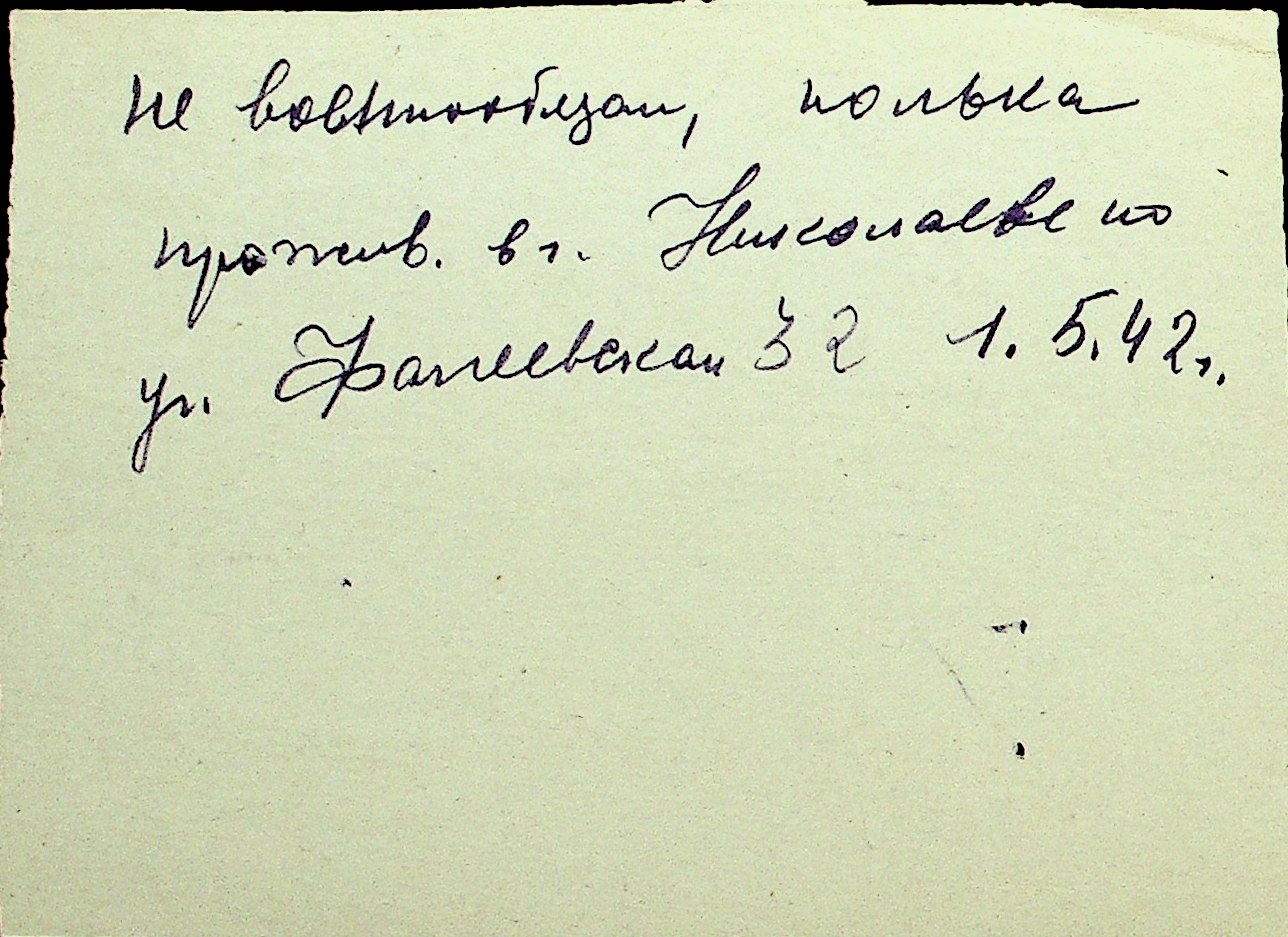 не военнообязан, полька
прожив. в г. Николаеве по
ул. Фалеевская 32 1.5.42г.